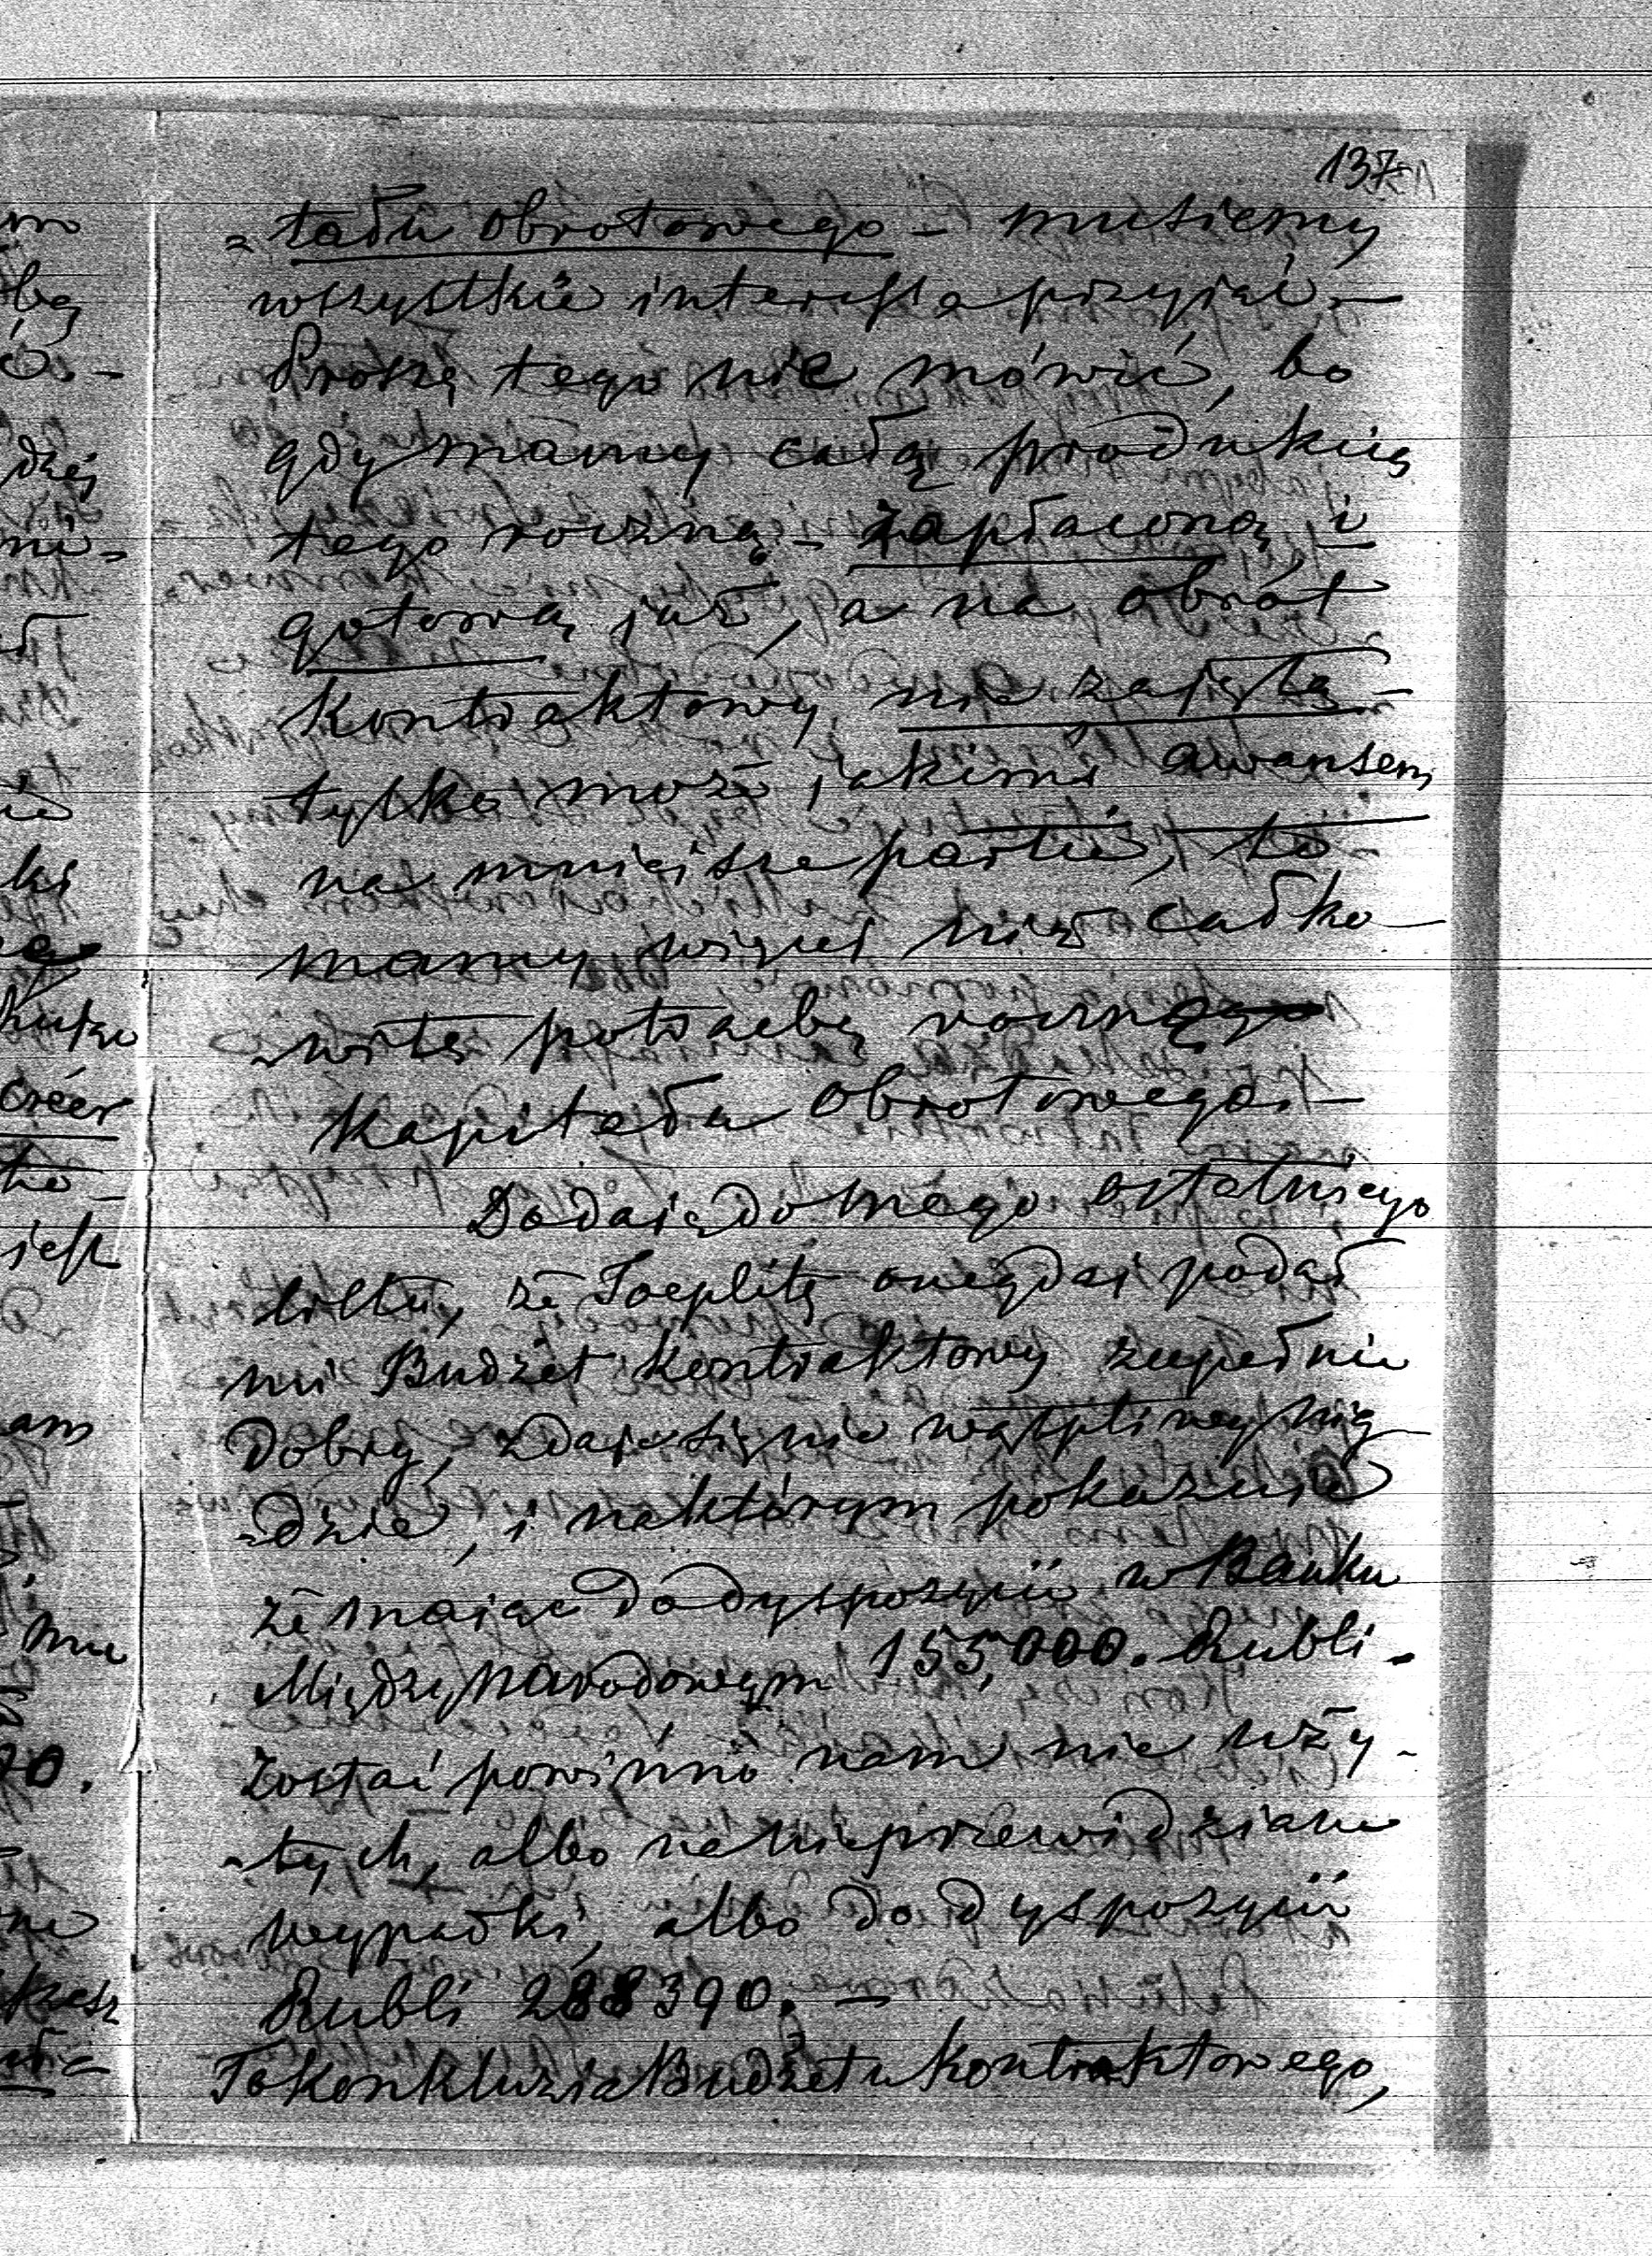 137
=tału obrotowego – musiemy
wszystkie interessa przyiąć. –
Proszę tego nie mówić, bo
gdy mamy całą produkcię
tego roczną – zapłaconą, i
gotową już, a na obrót
kontraktowy, nie zajętą –
tylko może jakimś awansem,
na mniejsze partie, to
mamy więcej niż całko
-witą potrzebę roczną
kapitału obrotowego. –
Dodaię do mego ostatniego
listu, że Toeplitz onegdaj podał
mi Budżet kontraktowy zupełnie
dobry, zdaje się nie wątpliwy nig
-dzie, i na którym pokazuie
że maiąc do dyspozycii w Banku
Międzynarodowym 155,000. Rubli.
zostać powinno nam nie uży-
-tych, albo na nieprzewidziane
wypadki, albo do dyspozycii
Rubli 288390. –
To konkluzia Budżetu kontraktowego,